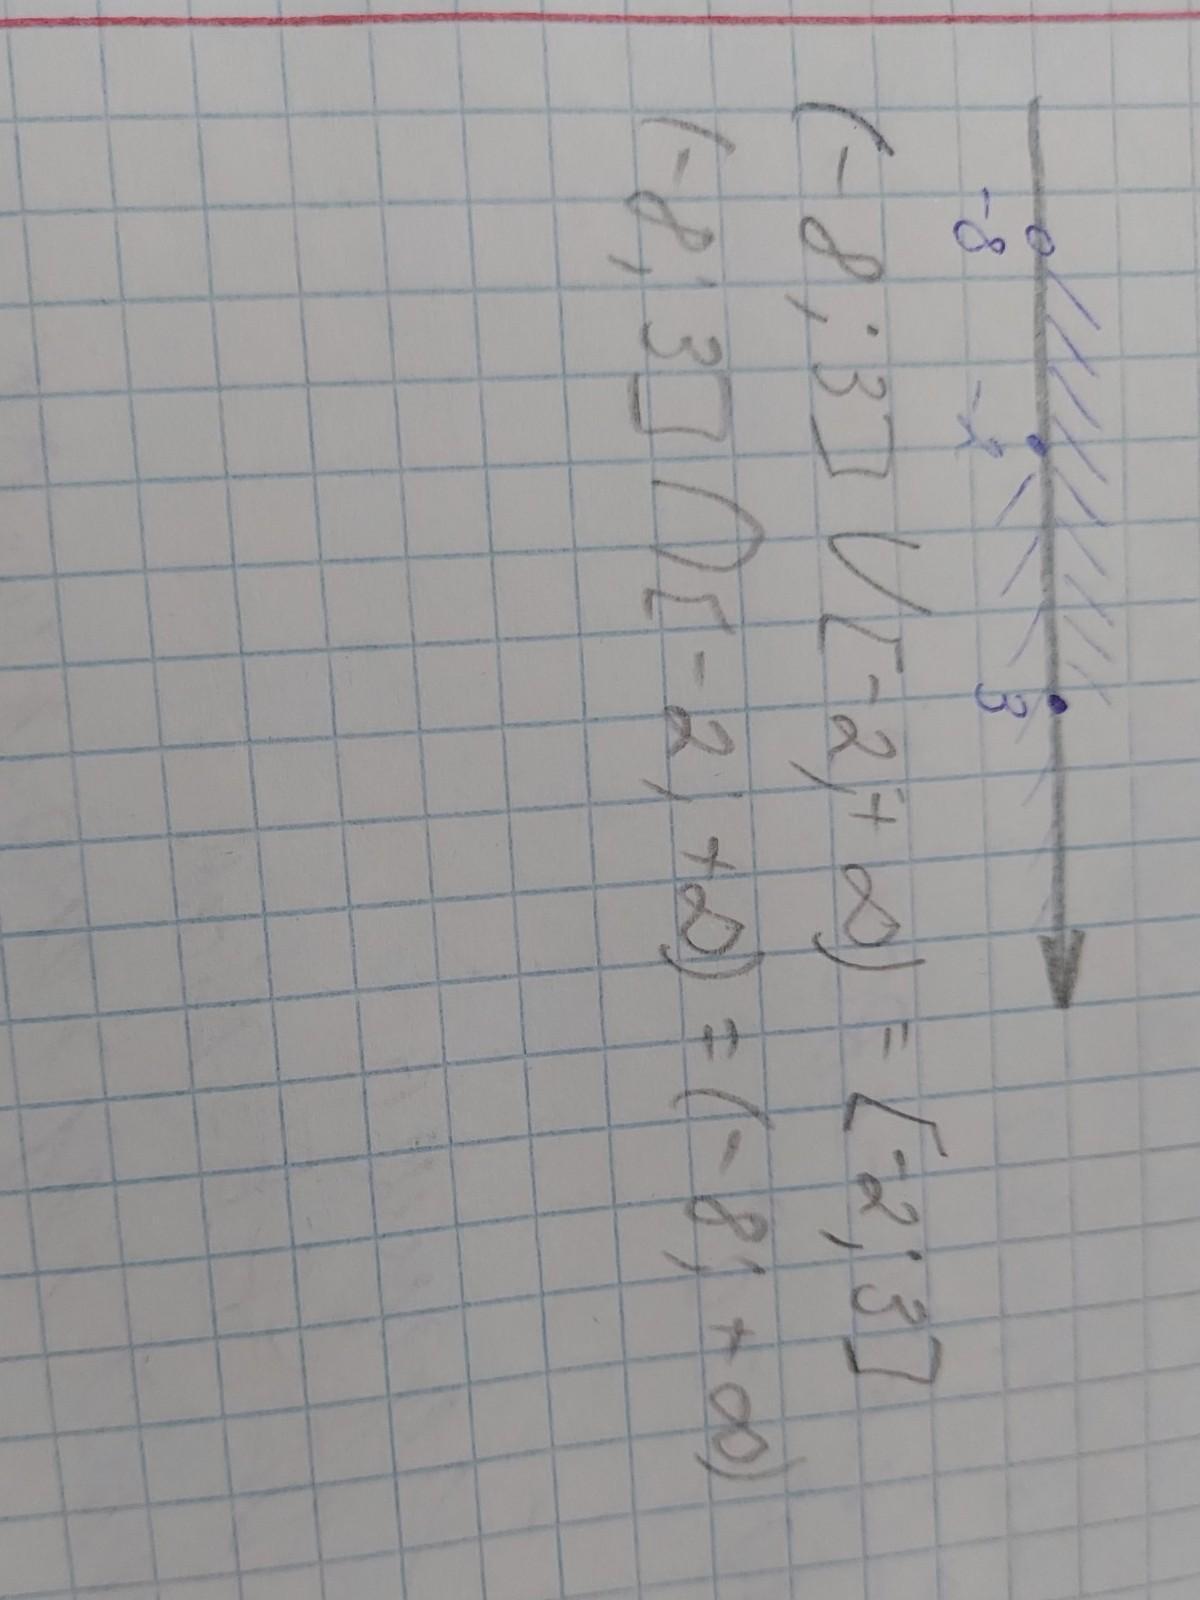 -8 -2 3
(-8; 3] U [-2; +∞) = [-2; 3]
(-8; 3] ∩ [-2; +∞) = (-8; +∞)